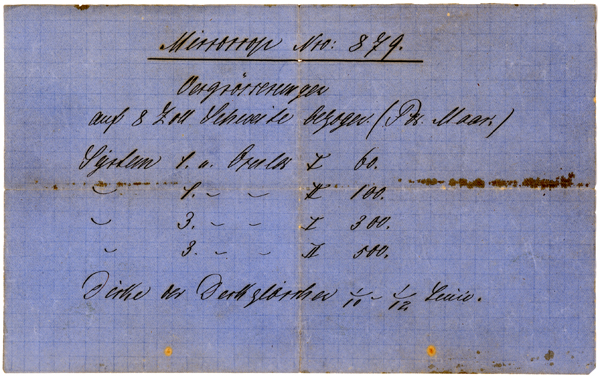 Microscop Nro: 879.
Vergrösserungen
auf 8 Zoll Sehweite bezogen. (Pr. Maas.)
System 1. u. Ocular I 60.
〃 1. 〃 〃 II 100.
〃 3. 〃 〃 I 300.
〃 3. 〃 〃 II 500.
Dicke der Deckgläschen 1/10 - 1/12 Linie.